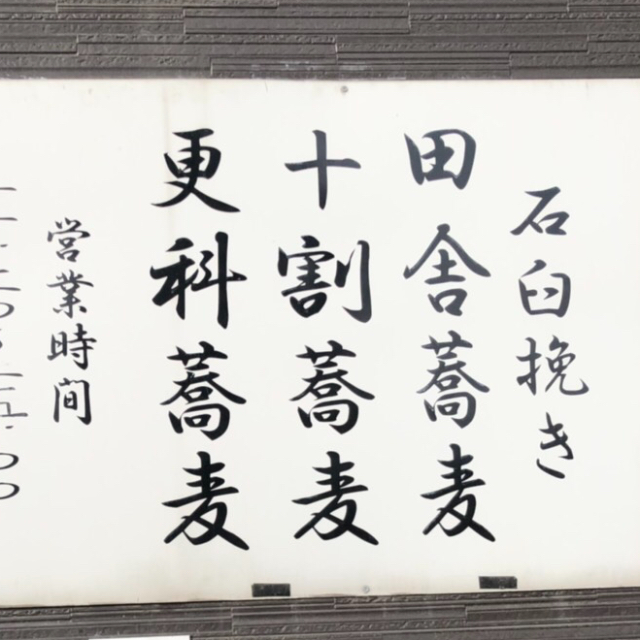 石臼挽き
田舎蕎麦
十割蕎麦
更科蕎麦
営業時間